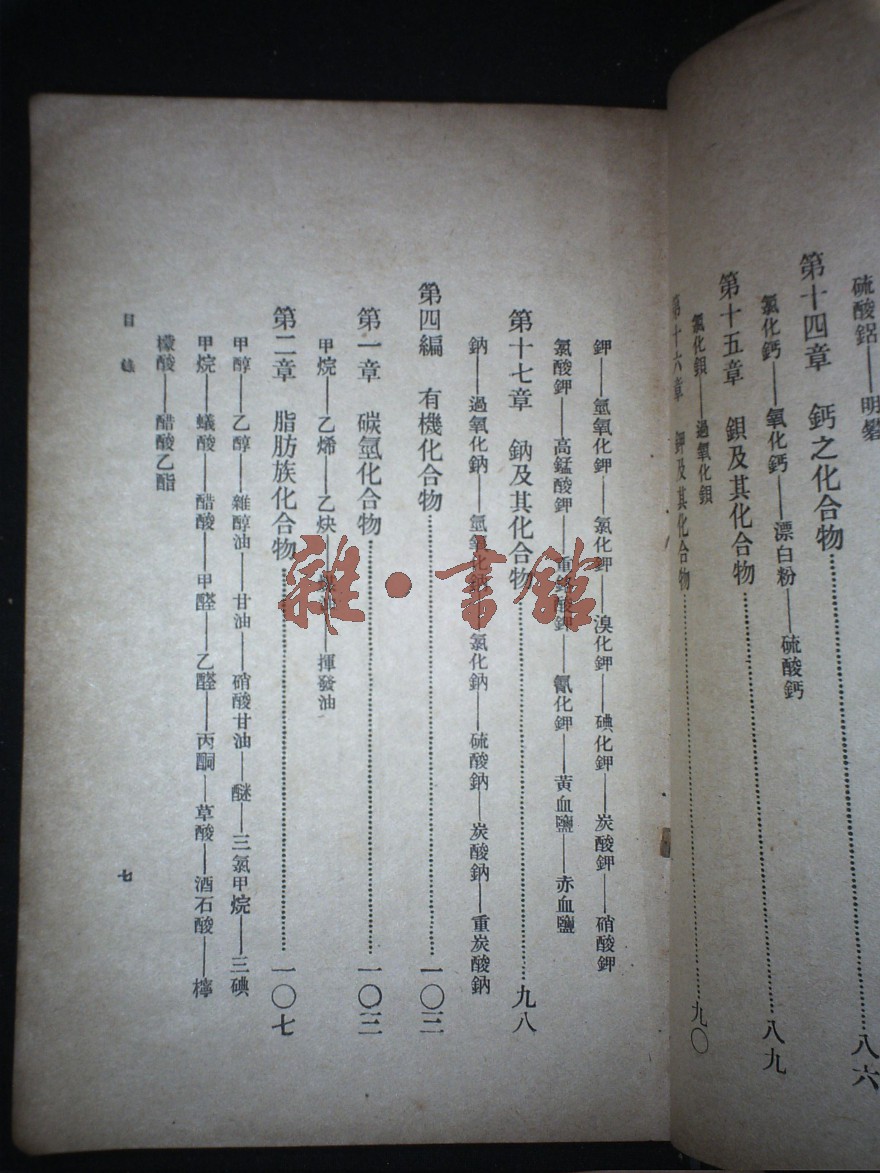 硫酸鋁——明礬
第十四章　鈣之化合物……八六
氯化鈣——氧化鈣——漂白粉——硫酸鈣
第十五章　鋇及其化合物……八九
氯化鋇——過氧化鋇
第十六章　鉀及其化合物……九〇
鉀——氫氧化鉀——氯化鉀——溴化鉀——碘化鉀——炭酸鉀——硝酸鉀
氯酸鉀——高錳酸鉀——重鉻酸鉀——氰化鉀——黃血鹽——赤血鹽
第十七章　鈉及其化合物……九八
鈉——過氧化鈉——氫氧化鈉——氯化鈉——硫酸鈉——炭酸鈉——重炭酸鈉
第四編　有機化合物……一〇三
第一章　碳氫化合物……一〇三
甲烷——乙烯——乙炔——揮發油
第二章　脂肪族化合物……一〇七
甲醇——乙醇——雜醇油——甘油——硝酸甘油——醚——三氯甲烷——三碘
甲烷——蟻酸——醋酸——甲醛——乙醛——丙酮——草酸——酒石酸——檸
檬酸——醋酸乙酯
目錄
七
雜·書館